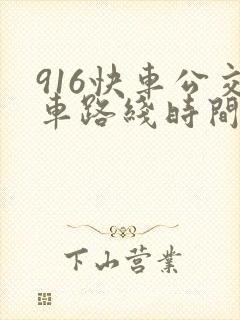 916快車公交
車路綫時間
下山营業